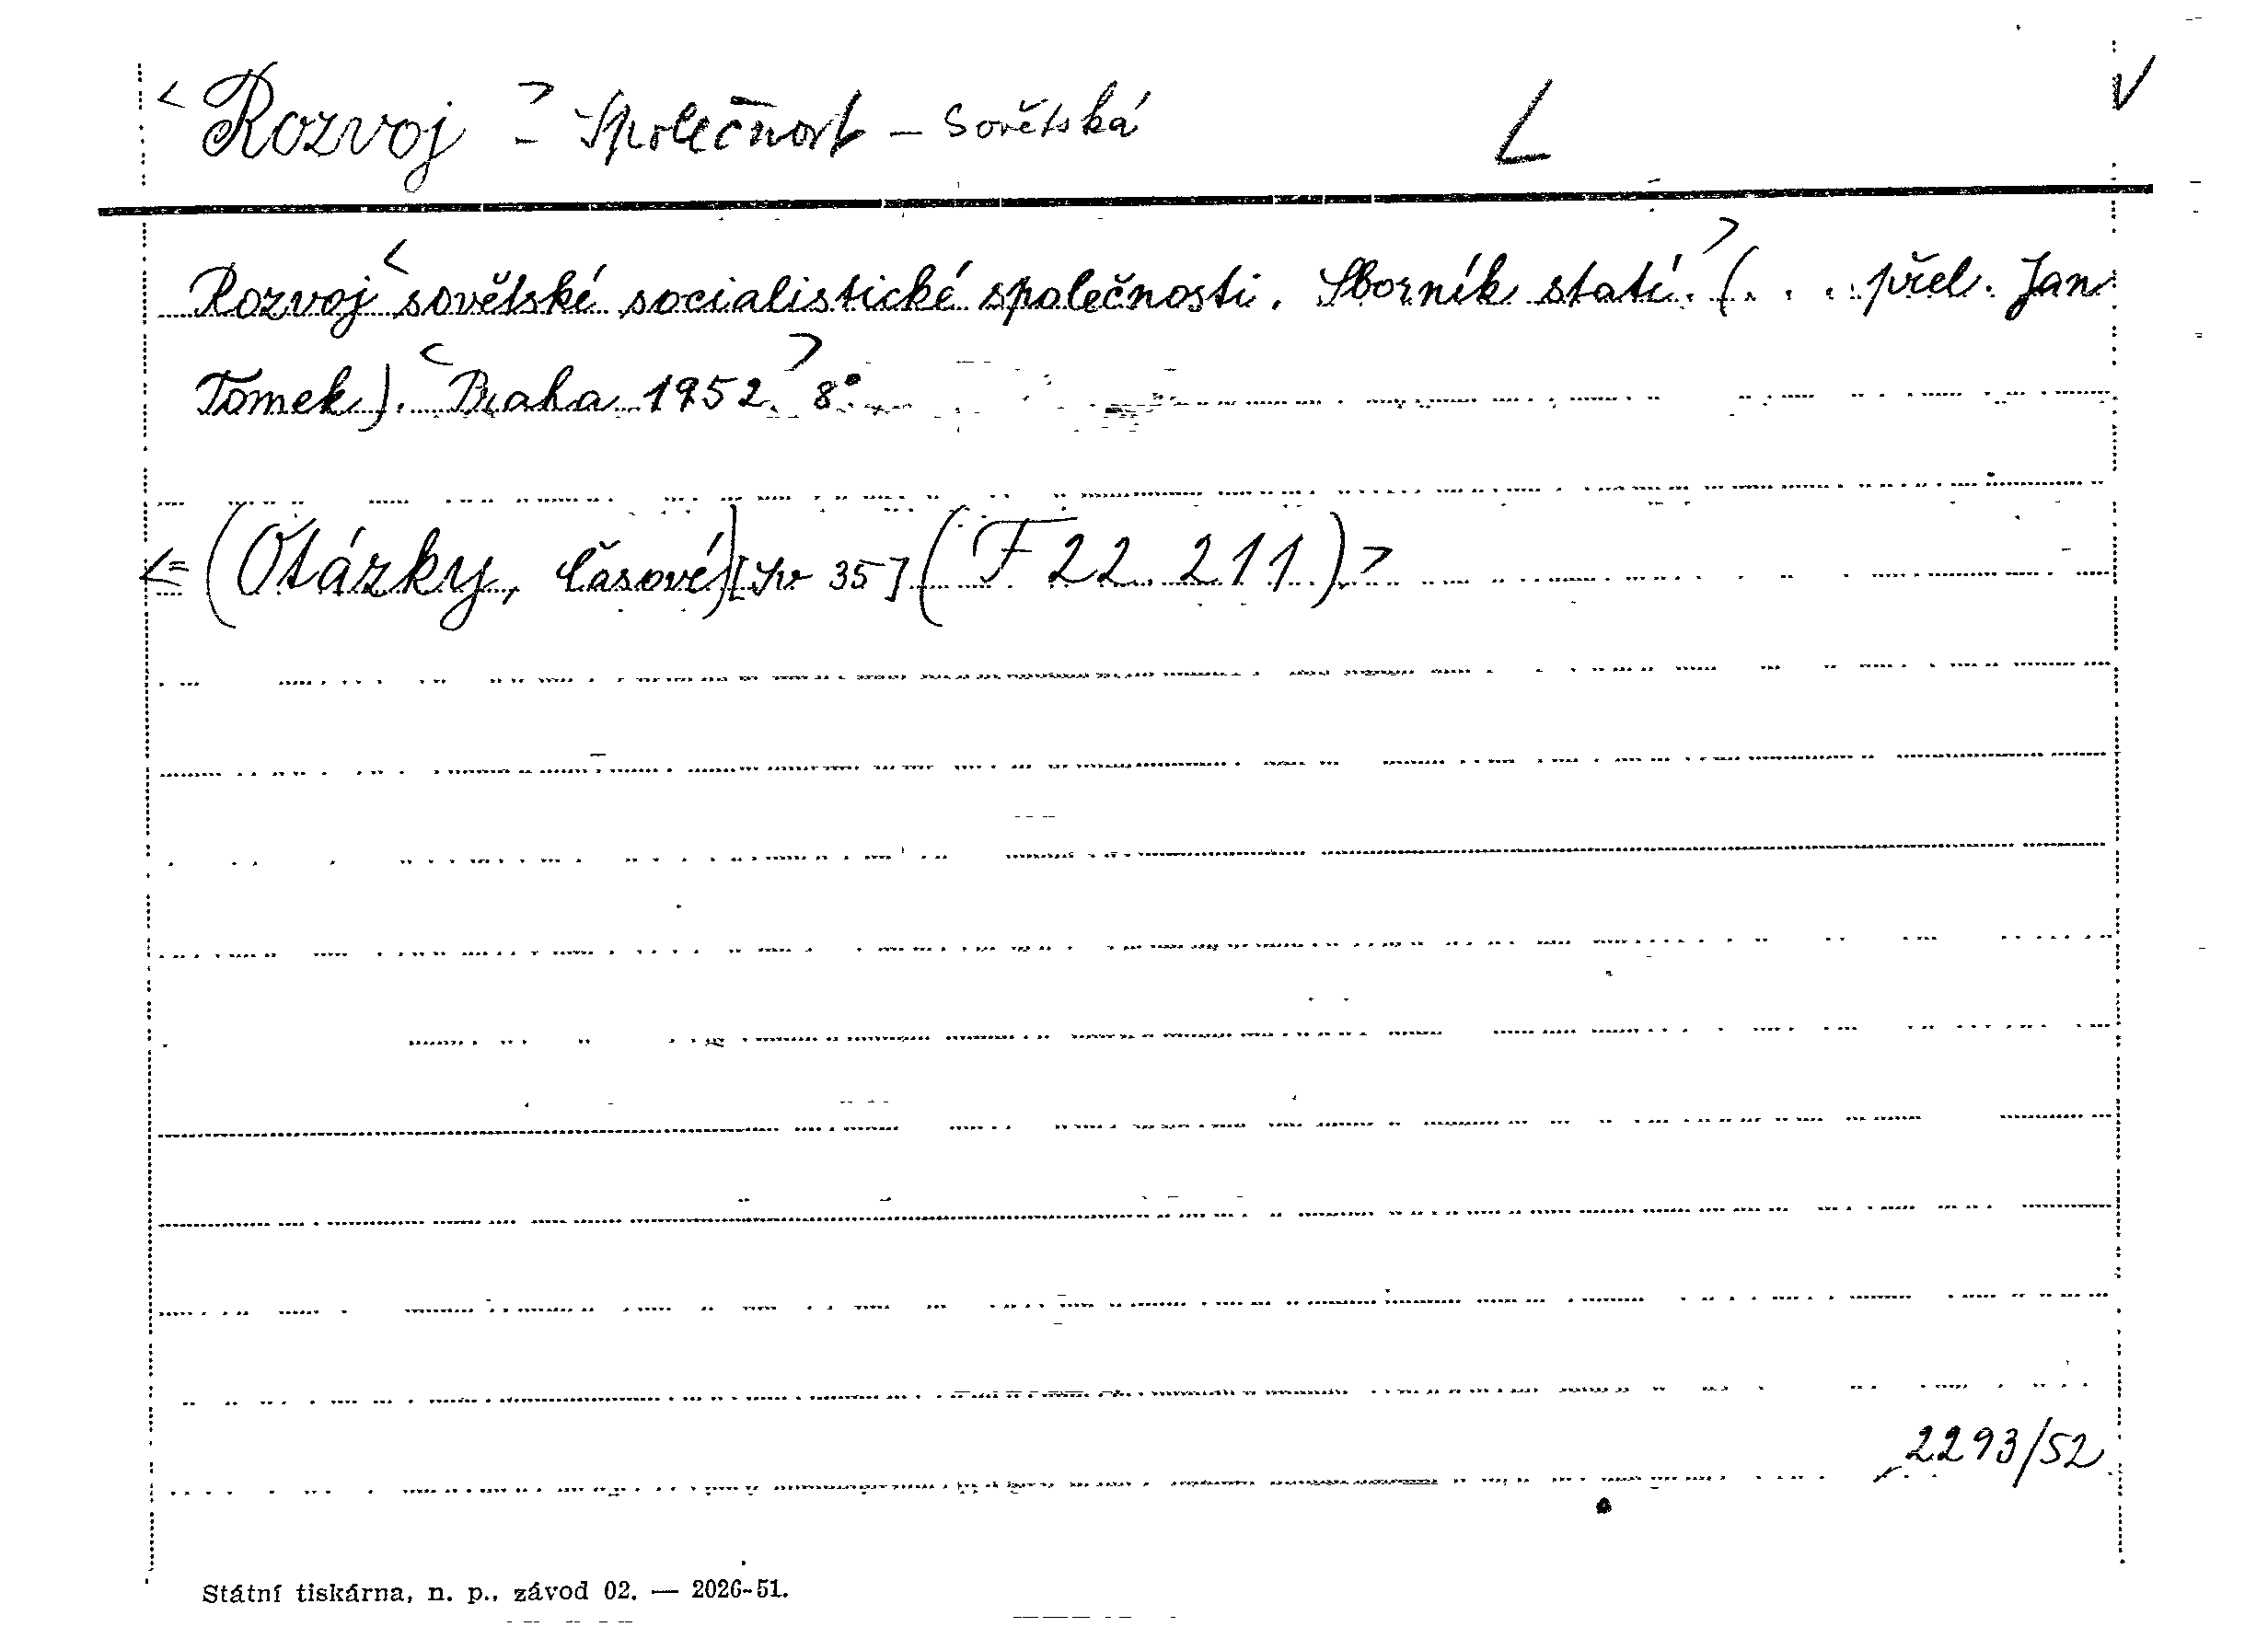 < Rozvoj > - Společnost - sovětská L V
Rozvoj < sovětské socialistické společnosti. Sborník statí. > (. . . přel. Jan
Tomek). < Praha 1952. > 8°.
<= (Otázky, časové) [Sv 35] (F 22 211) >
2293/52
Státní tiskárna, n. p., závod 02. — 2026-51.